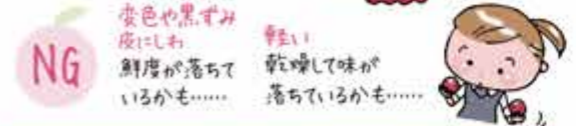 NG
変色や黒ずみ
皮にしわ
鮮度が落ちて
いるかも……
軽い
乾燥して味が
落ちているかも……